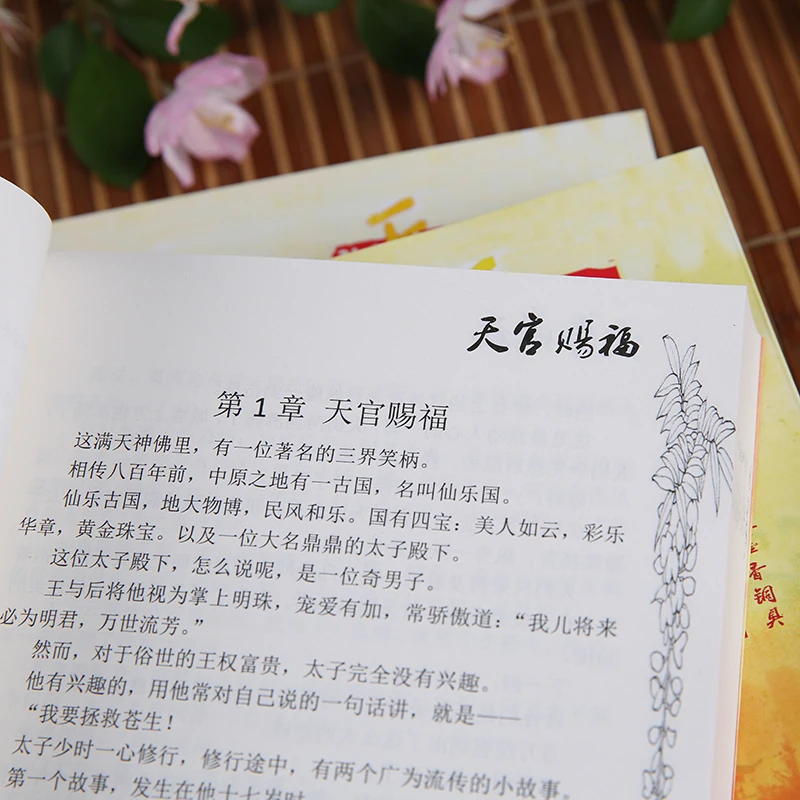 天官赐福
第1章 天官赐福
这满天神佛里，有一位著名的三界笑柄。
相传八百年前，中原之地有一古国，名叫仙乐国。
仙乐古国，地大物博，民风和乐。国有四宝：美人如云，彩乐
华章，黄金珠宝。以及一位大名鼎鼎的太子殿下。
这位太子殿下，怎么说呢，是一位奇男子。
王与后将他视为掌上明珠，宠爱有加，常骄傲道：“我儿将来
必为明君，万世流芳。”
然而，对于俗世的王权富贵，太子完全没有兴趣。
他有兴趣的，用他常对自己说的一句话讲，就是——
“我要拯救苍生！
太子少时一心修行，修行途中，有两个广为流传的小故事。
第一个故事，发生在他十七岁时